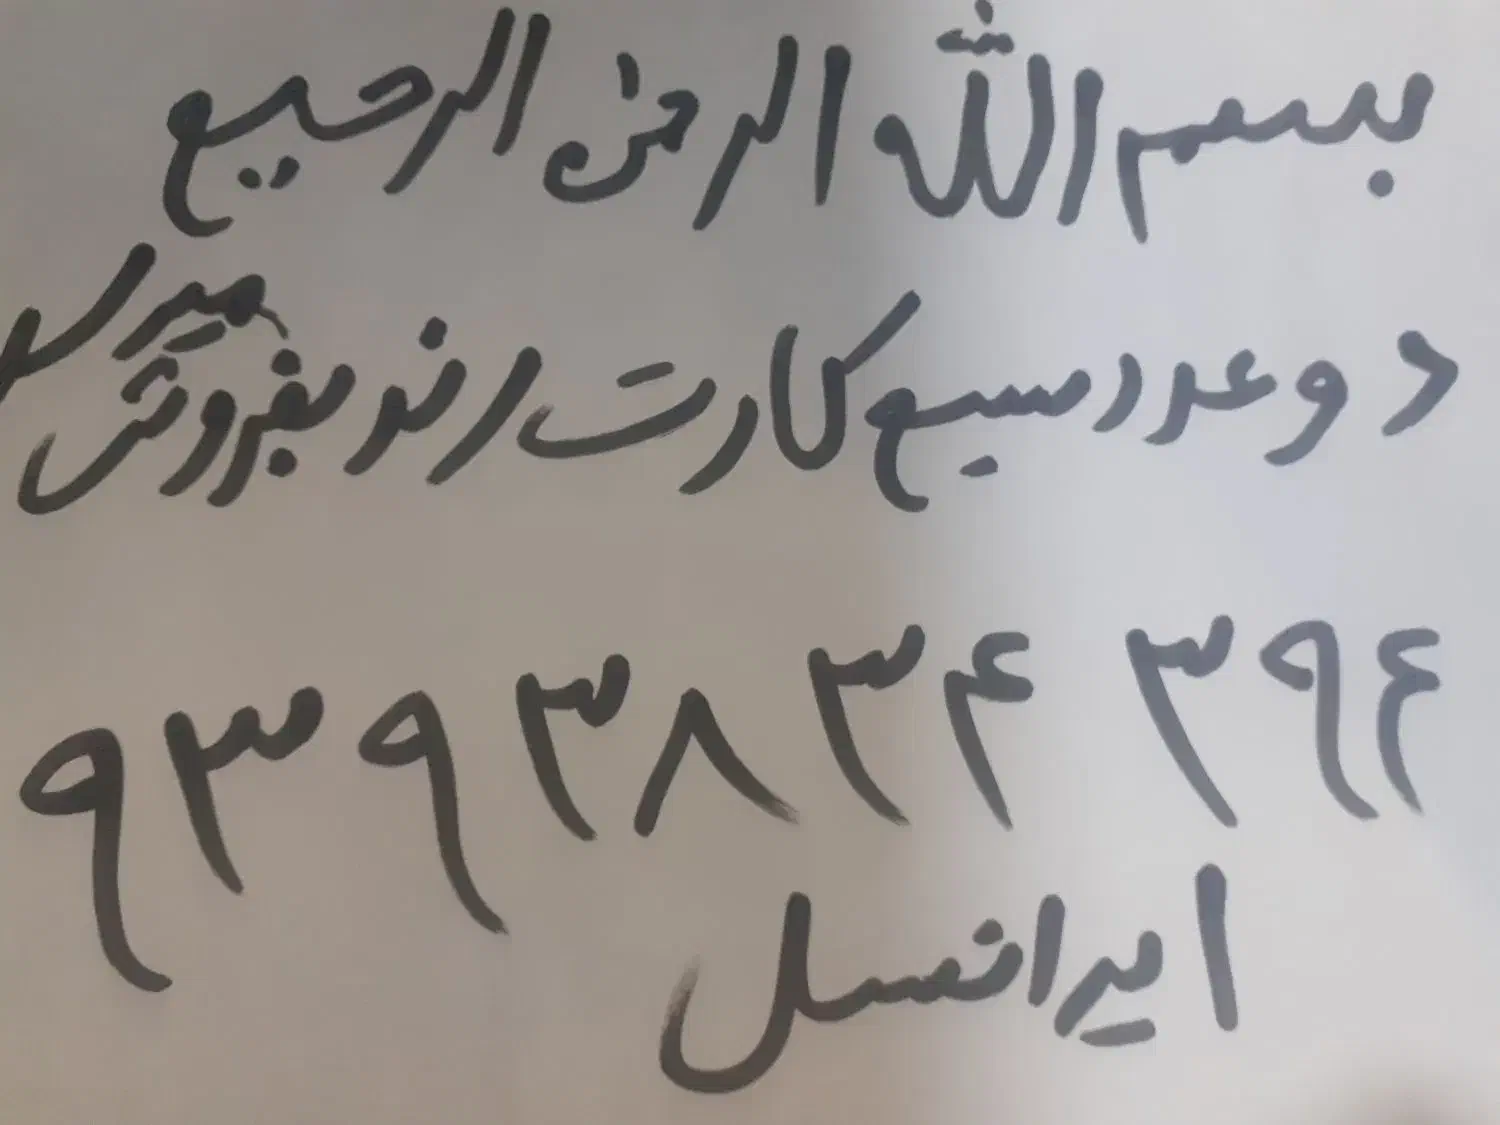 بسم الله الرحمن الرحیم
دو عدد سیم کارت رند بفروش میرسد
۹۳۹۳۸۳۴۳۹۴
ایرانسل